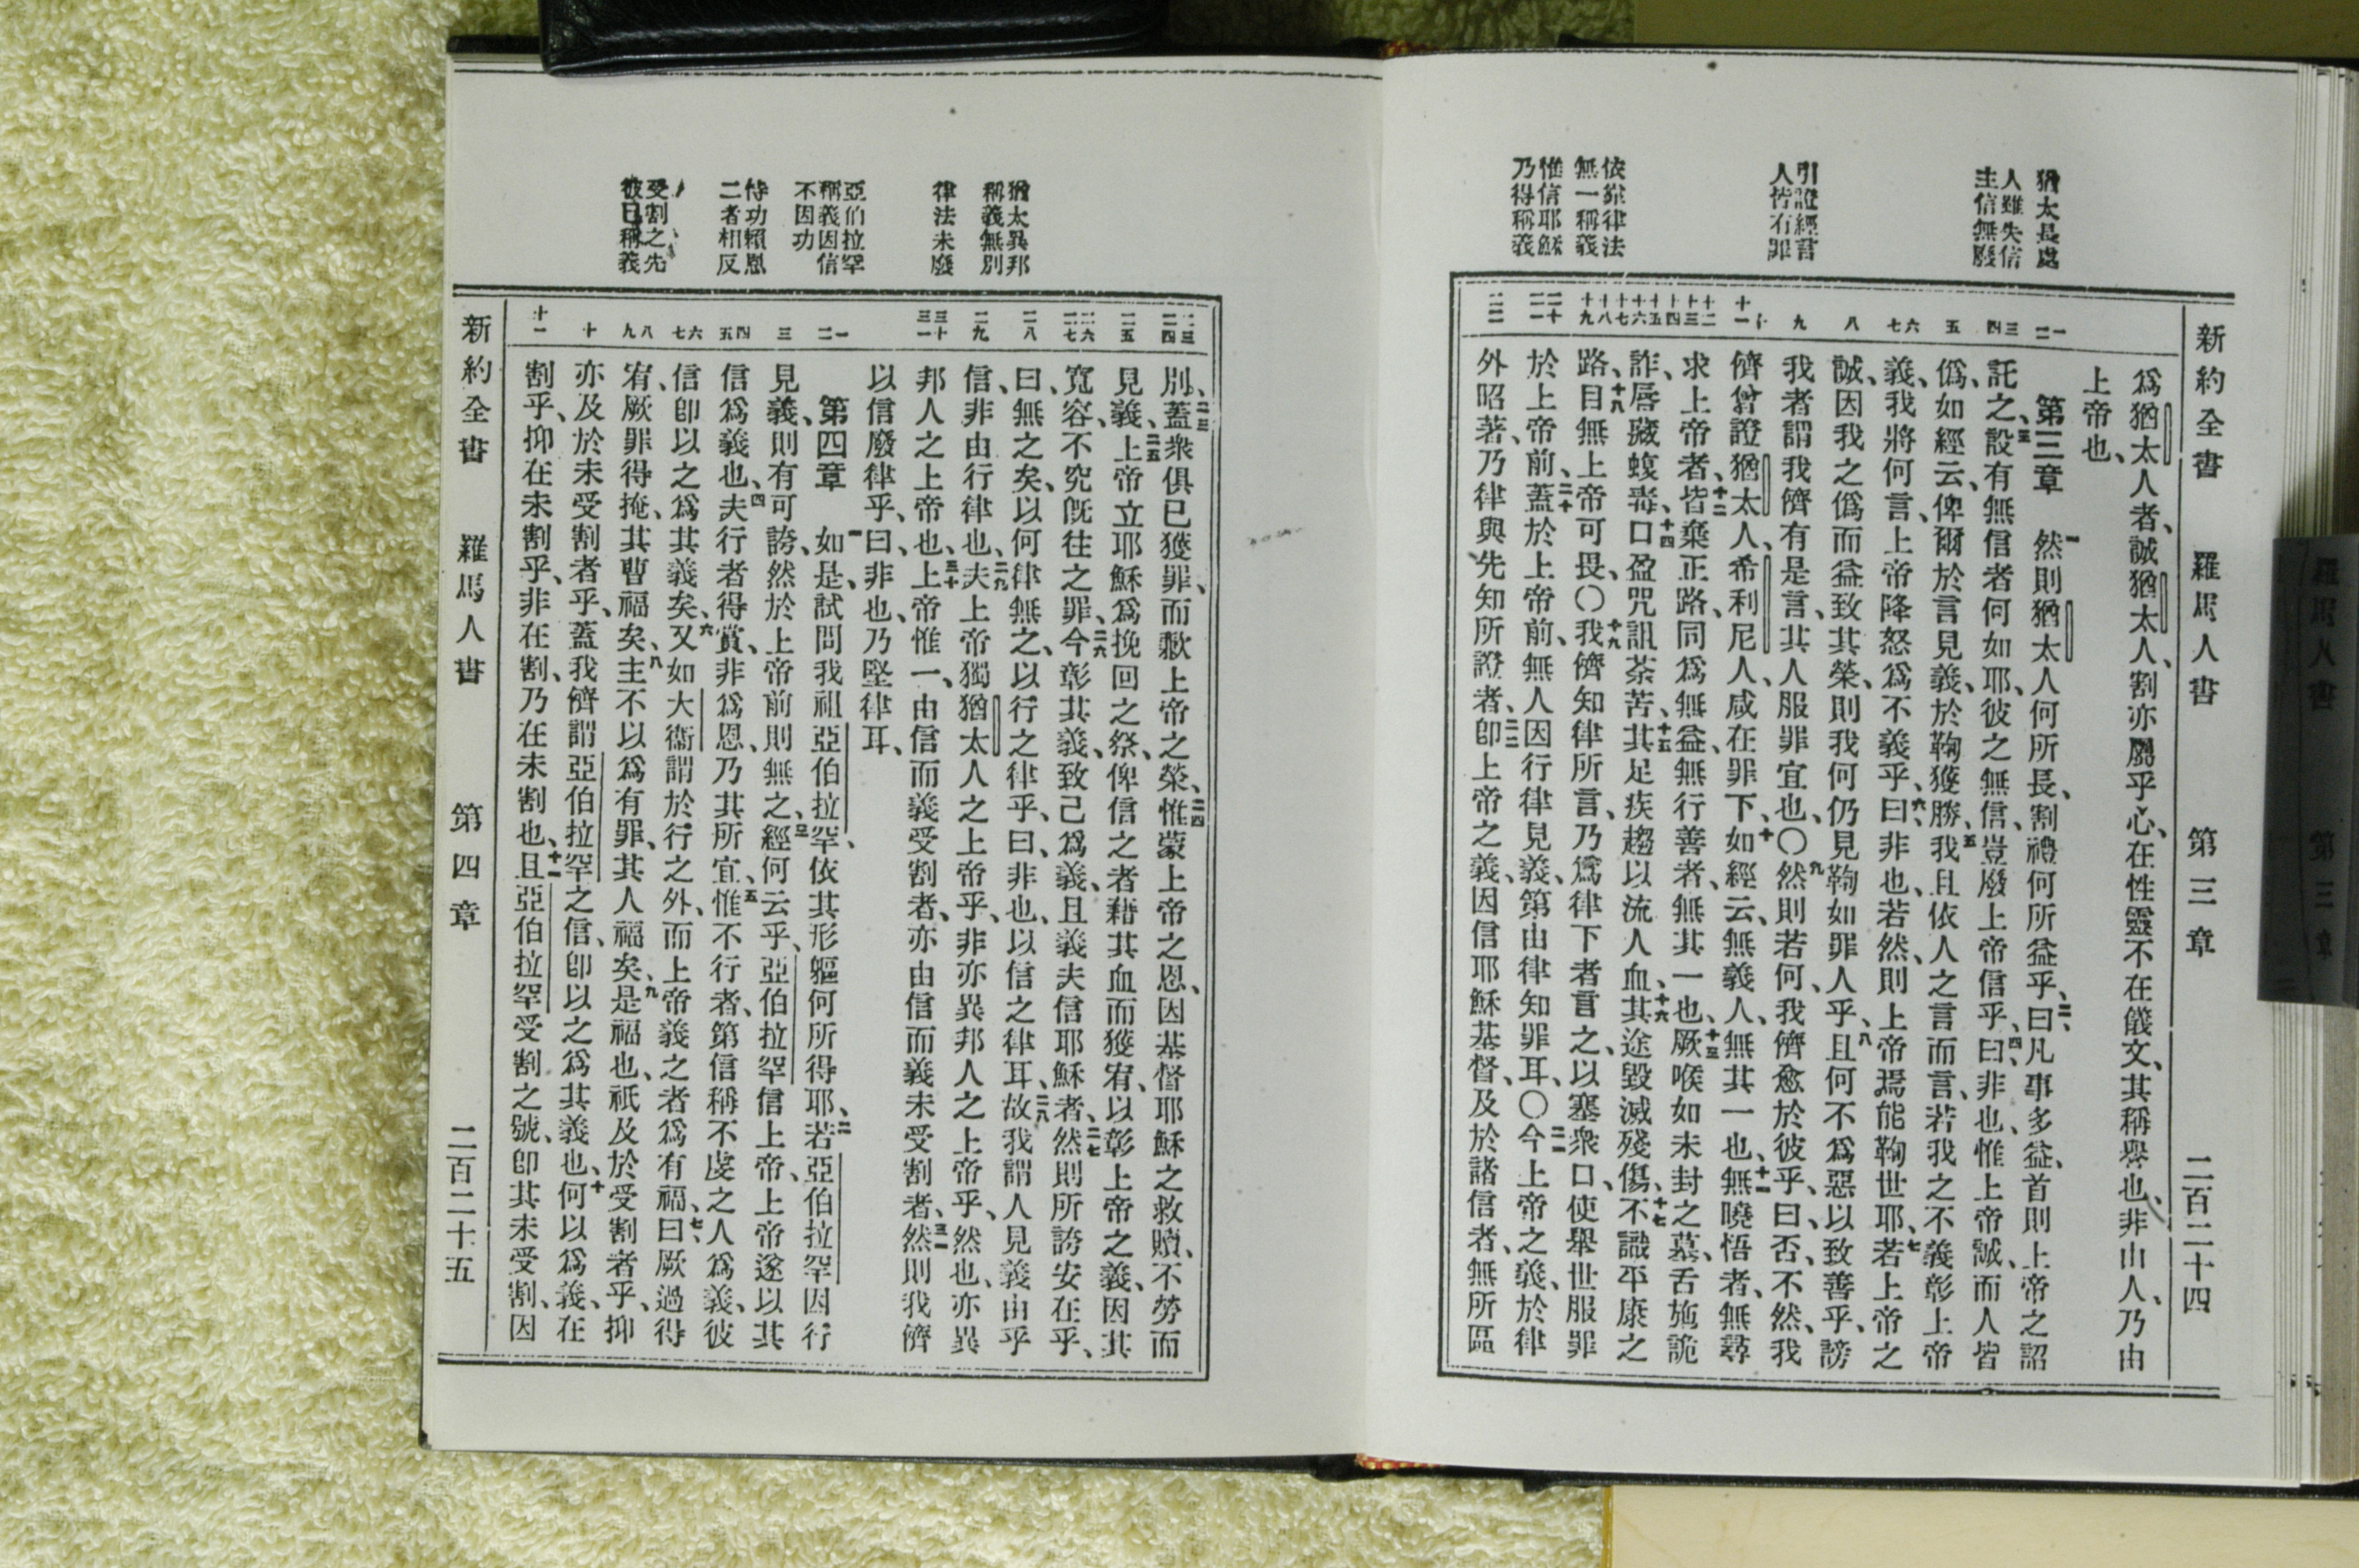 新約全書 羅馬人書 第三章 二百二十四
猶太長處
人雖失信
主信無廢
引證經言
人皆有罪
依靠律法
無一稱義
惟信耶穌
乃得稱義
爲猶太人者、誠猶太人、割亦屬乎心、在性靈不在儀文、其稱譽也、非由人、乃由
上帝也、
第三章 一然則猶太人何所長、割禮何所益乎、二曰、凡事多益、首則上帝之詔
託之、三設有無信者何如耶、彼之無信、豈廢上帝信乎、四曰、非也、惟上帝誠、而人皆
僞、如經云、俾爾於言見義、於鞫獲勝、五我且依人之言而言、若我之不義、彰上帝
義、我將何言、上帝降怒、爲不義乎、六曰、非也、若然、則上帝焉能鞫世耶、七若上帝之
誠、因我之僞而益致其榮、則我何仍見鞫如罪人乎、八且何不爲惡以致善乎、謗
我者謂我儕有是言、其人服罪宜也、〇九然則若何、我儕愈於彼乎、曰、否、不然、我
儕曾證猶太人、希利尼人、咸在罪下、十如經云、無義人、無其一也、十一無曉悟者、無尋
求上帝者、十二皆棄正路、同爲無益、無行善者、無其一也、十三厥喉如未封之墓、舌施詭
詐、唇藏蝮毒、十四口盈咒詛荼苦、十五其足疾趨以流人血、十六其途毀滅殘傷、十七不識平康之
路、十八目無上帝可畏、〇十九我儕知律所言、乃爲律下者言之、以塞衆口、使舉世服罪
於上帝前、二十蓋於上帝前、無人因行律見義、第由律知罪耳、〇二一今上帝之義、於律
外昭著、乃律與先知所證者、二二卽上帝之義、因信耶穌基督、及於諸信者、無所區
猶太異邦
稱義無別
律法未廢
亞伯拉罕
稱義因信
不因功
恃功賴恩
二者相反
受割之先
彼已稱義
別、二三蓋衆俱已獲罪、而歉上帝之榮、二四惟蒙上帝之恩、因基督耶穌之救贖、不勞而
見義、二五上帝立耶穌爲挽回之祭、俾信之者藉其血而獲宥、以彰上帝之義、因其
寬容、不究旣往之罪、二六今彰其義、致己爲義、且義夫信耶穌者、二七然則所誇安在乎、
曰、無之矣、以何律無之、以行之律乎、曰、非也、以信之律耳、二八故我謂人見義由乎
信、非由行律也、二九夫上帝獨猶太人之上帝乎、非亦異邦人之上帝乎、然也、亦異
邦人之上帝也、三十上帝惟一、由信而義受割者、亦由信而義未受割者、三一然則我儕
以信廢律乎、曰、非也、乃堅律耳、
第四章 一如是、試問我祖亞伯拉罕、依其形軀何所得耶、二若亞伯拉罕因行
見義、則有可誇、然於上帝前則無之、三經何云乎、亞伯拉罕信上帝、上帝遂以其
信爲義也、四夫行者得賞、非爲恩、乃其所宜、五惟不行者、第信稱不虔之人爲義、彼
信卽以之爲其義矣、六又如大衞謂於行之外、而上帝義之者爲有福、七曰、厥過得
宥、厥罪得掩、其曹福矣、八主不以爲有罪、其人福矣、九是福也、祇及於受割者乎、抑
亦及於未受割者乎、蓋我儕謂亞伯拉罕之信、卽以之爲其義也、十何以爲義、在
割乎、抑在未割乎、非在割、乃在未割也、十一且亞伯拉罕受割之號、卽其未受割、因
新約全書 羅馬人書 第四章 二百二十五